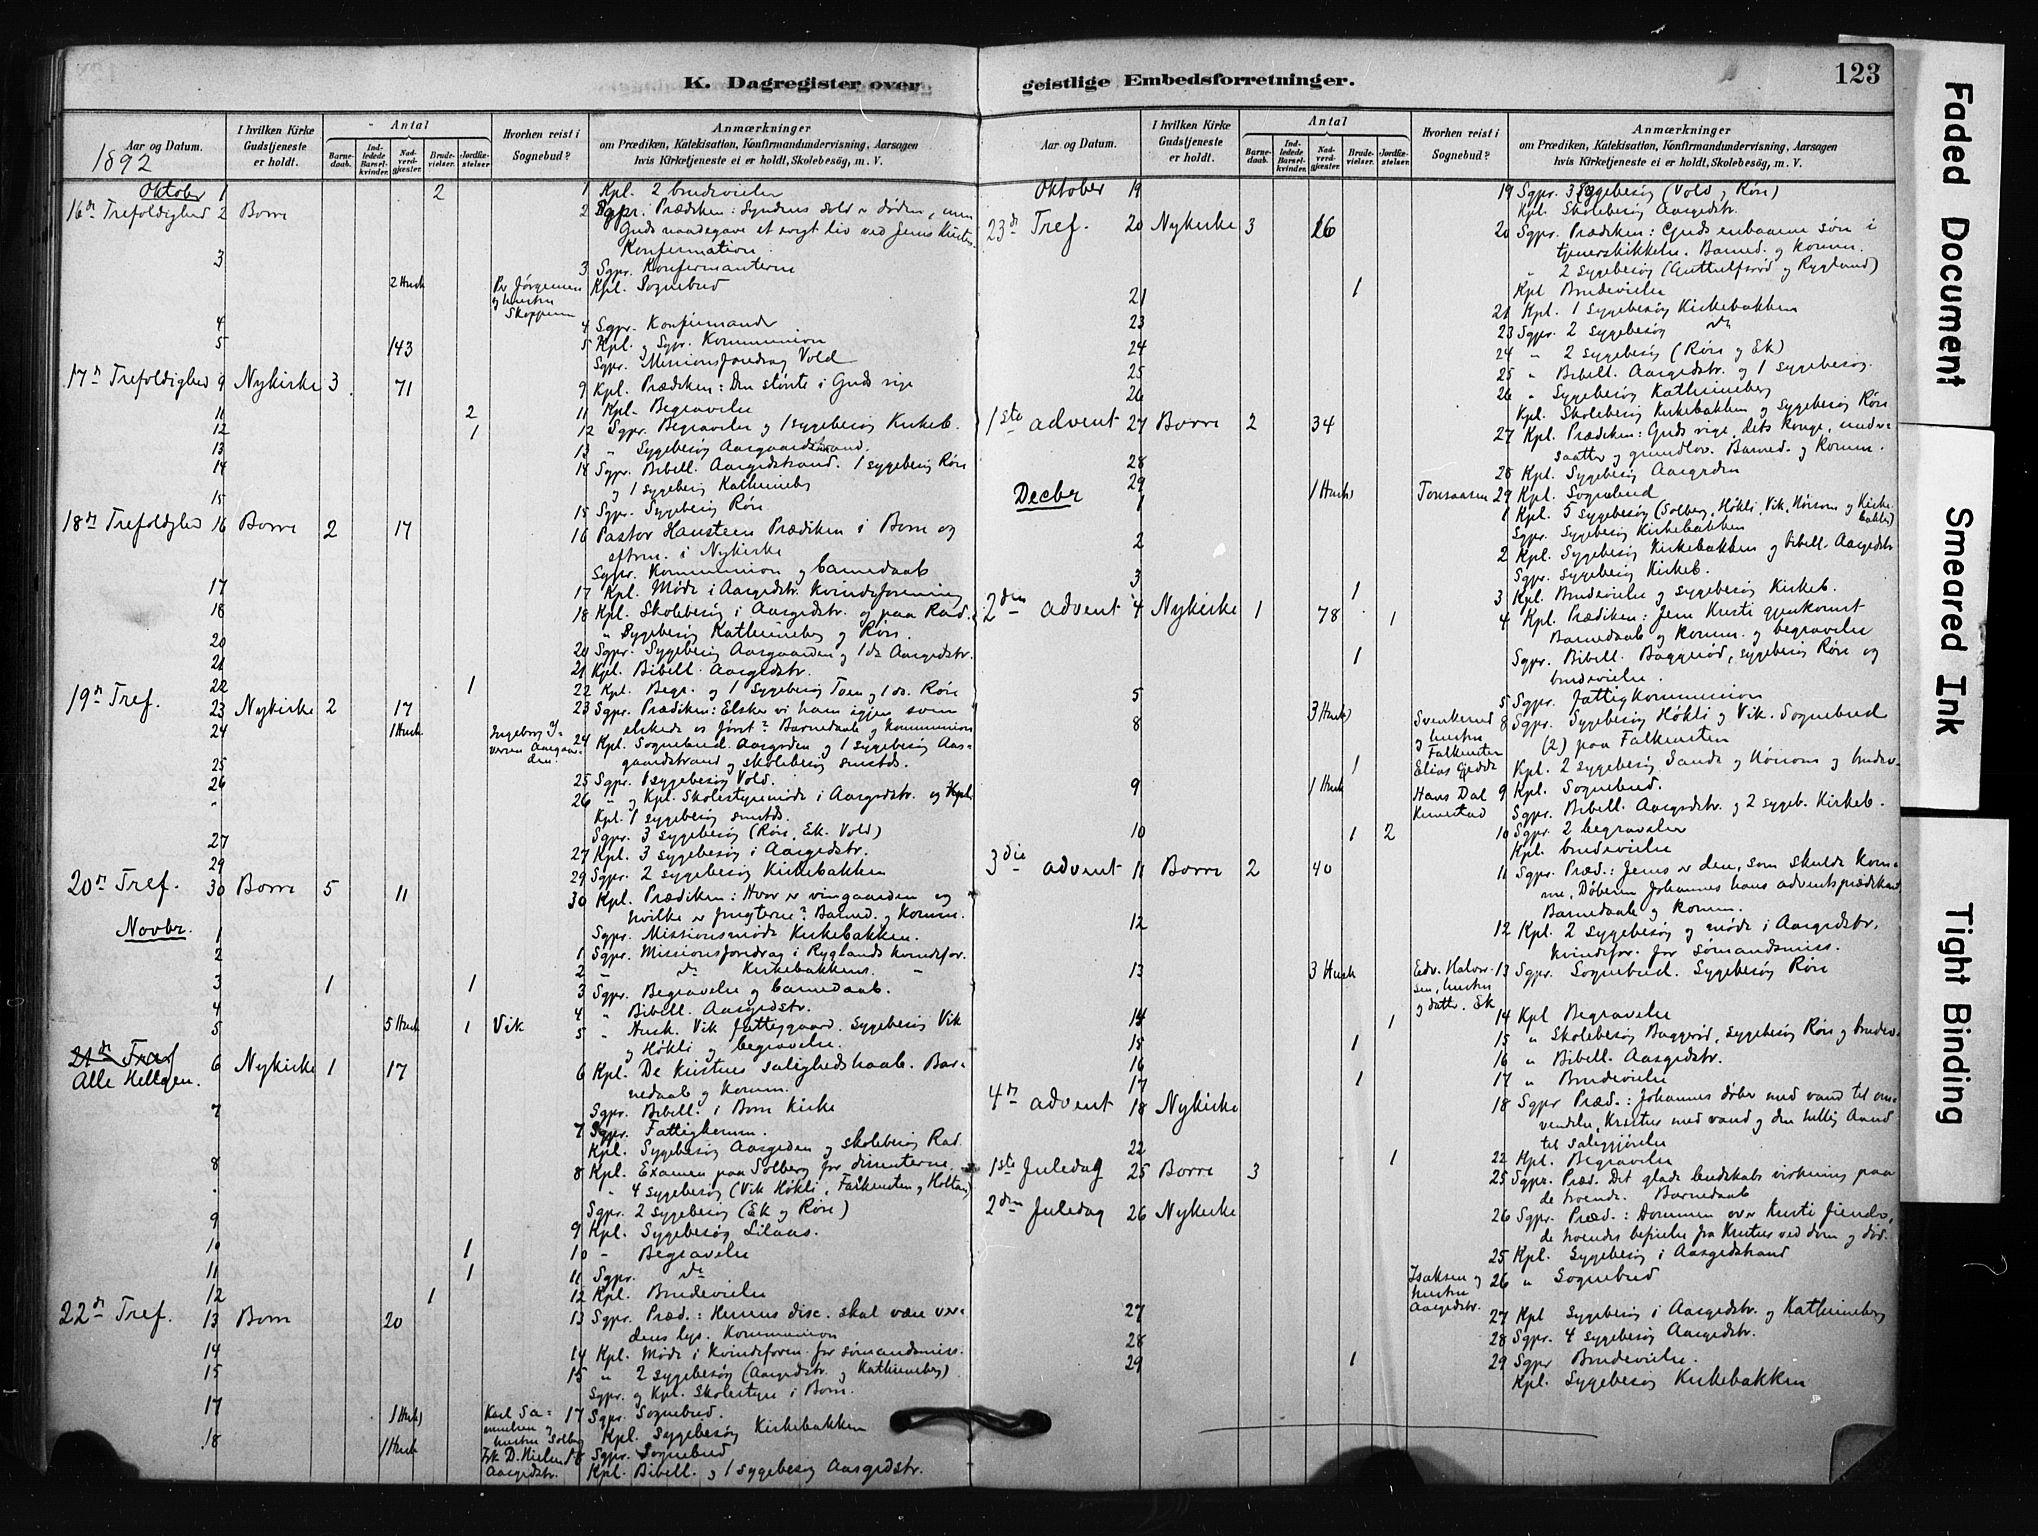 K. Dagregister over
Aar og Datum.
1892
I hvilken Kirke Gudstjeneste er holdt.
Antal
Barnedaab.
Indledede Barselkvinder.
Nadverdgjester.
Brudevielser.
Jordfæstelser.
Hvorhen reist i Sognebud?
Anmærkninger
om Prædiken, Katekisation, Konfirmandundervisning, Aarsagen
hvis Kirketjeneste ei er holdt, Skolebesög, m. V.
Oktober 1 2 1 Kpl. 2 brudevielser
16de Trefoldighed 2 Borre 2 Sgpr. Prædiken: Syndens sold er døden, men
Guds naadegave et evigt liv ved Jesus Kristus
Konfirmation
3 3 Sgpr. Konfirmanterne
2 Husk Per Jørgensen og hustru Skoppum Kpl. Sognebud
4 4 Sgpr. Konfirmander
5 143 5 Kpl. og Sgpr. Kommunion
Sgpr. Missionsforedrag Vold
17de Trefoldighed 9 Nykirke 3 71 9 Kpl. Prædiken: Den største i Guds rige
11 2 11 Kpl. Begravelse
12 1 12 Sgpr. Begravelse og 1 sygebesøg Kirkeb.
13 13 " Sygebesøg Aasgaardstrand.
14 14 Sgpr. Bibell. Aasgrdstrand. 1 sygebesøg Røre
og 1 sygebesøg Kathrineberg
15 15 Sgpr. Sygebesøg Røre
18de Trefoldighed 16 Borre 2 17 16 Pastor Hansteen Prædiken i Borre og
efterm. i Nykirke
Sgpr. Kommunion og barnedaab
17 17 Kpl. Møde i Aasgrdstr. Kvindeforening
18 18 Kpl. Skolebesøg i Aasgrdstr. og paa Rød.
" Sygebesøg Kathrineberg og Røre.
20 20 Sgpr. Sygebesøg Aasgaarden og 1 do Aasgrdstr.
21 21 Kpl. Bibell. Aasgrdstr.
22 1 22 Kpl. Begr. og 1 sygebesøg Toen og 1 do. Røre
19de Tref. 23 Nykirke 2 17 23 Sgpr. Prædiken: Elsker vi ham igjen som
elskede os først? Barnedaab og kommunion
24 1 Husk 24 Kpl. Sognebud Aasgrden og 1 sygebesøg Aasgaardstrand
og skolebesøg smstds.
25 25 Sgpr. 1 sygebesøg Vold.
26 26 " og Kpl. Skolestyremøde i Aasgrdstr. og Kpl.
" Kpl. 1 sygebesøg smstds.
Sgpr. 3 sygebesøg (Røre, Ek, Vold)
27 27 Kpl. 3 sygebesøg i Aasgrdstr.
29 29 Sgpr. 2 sygebesøg Kirkebakken
20de Tref. 30 Borre 5 11 30 Kpl. Prædiken: Hvor er vingaarden og
hvilke er frugterne? Barned. og Komm.
Sgpr. Missionsmøde Kirkebakken.
Novbr. 1 1 Sgpr. Missionsforedrag i Ryglands kvindefor.
2 2 " do Kirkebakkens "
3 1 1 3 Sgpr. Begravelse og barnedaab.
4 4 " Bibell. Aasgrdstr.
5 5 Husk 1 Vik 5 " Husk. Vik fattiggaard. Sygebesøg Vik
og Høkli og begravelse.
21de Tref
Alle Helgen. 6 Nykirke 1 17 6 Kpl. De kristnes salighedshaab. Barnedaab
og komm.
Sgpr. Bibell. i Borre Kirke
7 7 Sgpr. Fattigkomm.
Kpl. Sygebesøg Aasgrden og skolebesøg Rød.
8 8 Kpl. Examen paa Solberg for
" 4 sygebesøg (Vik Høkli, Falkensten og Holtan)
Sgpr. 2 sygebesøg (Ek og Røre)
9 9 Kpl. Sygebesøg Lilaas.
10 1 10 " Begravelse
11 1 11 Sgpr. do
12 1 12 Kpl. Brudevielse
22de Tref. 13 Borre 20 13 Sgpr. Præd.: Herrens disc. skal være verdens
lys. Kommunion
14 14 Kpl. Møde i kvindeforen. for sømandsmiss.
15 15 " 2 sygebesøg (Aasgrdstr. og Kathrineberg)
Sgpr. og Kpl. Skolestyre i Borre.
17 1 Husk Karl Samuelsen hustru Solberg 17 Sgpr. Sognebud.
Kpl. Sygebesøg Kirkebakken
18 1 Husk Frk D. Nielsen Aasgrdstr. 18 Sgpr. Sognebud
Kpl. Bibell. og 1 sygebesøg Aasgrdstr.
geistlige Embedsforretninger.
123
Aar og Datum.
I hvilken Kirke Gudstjeneste er holdt.
Antal
Barnedaab.
Indledede Barselkvinder.
Nadverdgjester.
Brudevielser.
Jordfæstelser.
Hvorhen reist i Sognebud?
Anmærkninger
om Prædiken, Katekisation, Konfirmandundervisning, Aarsagen
hvis Kirketjeneste ei er holdt, Skolebesög, m. V.
Oktober 19 19 Sgpr. 3 Sygebesøg (Vold og Røre)
Kpl. Skolebesøg Aasgrdstr.
23de Tref. 20 Nykirke 3 16 20 Sgpr. Prædiken: Guds enbaarne søn i
tjenerskikkelse. Barned. og komm.
" 2 sygebesøg (Guttulfsrød og Rygland)
1 Kpl Brudevielse
21 21 Kpl. 1 sygebesøg Kirkebakken
23 23 Sgpr. 2 sygebesøg do
24 24 " 2 sygebesøg (Røre og Ek)
25 25 " Bibell. Aasgrdstr. og 1 sygebesøg.
26 26 " Sygebesøg Kathrineberg
Kpl. Skolebesøg Kirkebakken og sygebesøg Røre
1ste advent 27 Borre 2 34 27 Kpl. Prædiken: Guds rige, dets konge, undersaatter
og grundlov. Barned. og Komm.
28 28 Kpl. Sygebesøg Aasgrden
29 1 Husk Tonsaasen 29 Kpl. Sognebud
Decbr 1 1 Kpl. 5 sygebesøg (Solberg, Høkli, Vik, Horsom og Kirkebakken)
Sgpr. Sygebesøg Kirkebakken
2 2 Kpl. Sygebesøg Kirkebakken og bibell. Aasgrdstr
Sgpr. Sygebesøg Kirkeb.
3 1 3 Kpl. Brudevielse og sygebesøg Kirkeb.
2den advent 4 Nykirke 1 78 1 4 Kpl. Prædiken: Jesu Kristi gjenkomst
Barnedaab og komm. og begravelse
1 Sgpr. Bibell. Baggerød, sygebesøg Røre og
brudevielse.
5 5 Sgpr. Fattigkommission
8 3 Husk Svenkerud og hustru Falkensten 8 Sgpr. Sygebesøg Høkli og Vik. Sognebud
(2) paa Falkensten
1 Elias Gjedde Kpl. 2 sygebesøg Sande og Horsom og brudev.
9 1 Husk Hans Dal 9 Kpl. Sognebud.
Sgpr. Bibell. Aasgrdstr. og 2 sygeb. Kirkeb.
10 1 2 10 Sgpr. 2 begravelser
Kpl. brudevielse
3die advent 11 Borre 2 40 11 Sgpr. Præd.: Jesus er den, som skulde komme,
Døberen Johannes hans adventsprædikant
Barnedaab og komm.
12 12 Kpl. 2 sygebesøg og møde i Aasgrdstr.
kvindefor. for sømandsmiss.
13 3 Husk Edv. Halvorsen, hustru og datter. Ek 13 Sgpr. Sognebud. Sygebesøg Røre
14 1 14 Kpl Begravelse
15 1 15 " Skolebesøg Baggerød, sygebesøg Røre og brudev.
16 16 " Bibell. Aasgrdstr.
17 1 17 " Brudevielse
4de advent 18 Nykirke 18 Sgpr Præd.: Johannes døber med vand til omvendelse,
Kristus med vand og den hellig Aand
til saliggjørelse
22 1 22 Kpl. Begravelse
1ste Juledag 25 Borre 3 25 Sgpr. Præd. Det glade budskabs virkning paa
de troende. Barnedaab
2den Juledag 26 Nykirke 26 Sgpr. Præd.: Dommen over Kristi fiender,
de troendes befrielse fra Kristus ved dom og død.
25 Kpl. Sygebesøg i Aasgrdstrand
Isaksen og hustru Aasgrdstr. 26 " Sognebud
27 27 Kpl Sygebesøg i Aasgrdstr. og Kathrineberg
28 28 Sgpr. 4 sygebesøg Aasgrdstr.
29 1 29 Sgpr Brudevielse.
Kpl. Sygebesøg Kirkebakken
Faded Document
Smeared Ink
Tight Binding